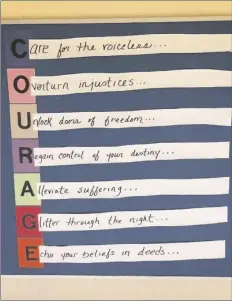 Care for the voiceless...
Overturn injustices...
Unlock doors of freedom...
Regain control of your destiny...
Alleviate suffering...
Glitter through the night...
Echo your beliefs in deeds...